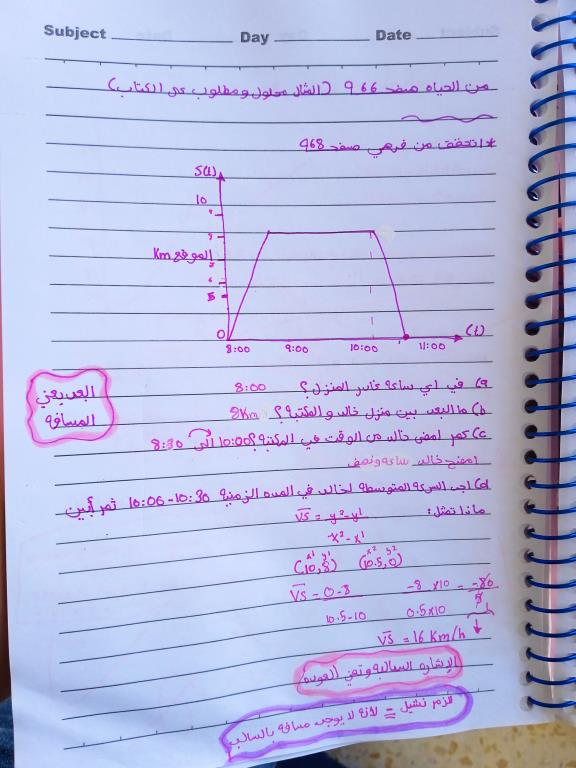 Subject Day Date
من الحياه صفحه 966 (المثال محلول ومطلوب عى الكتاب)
* اتحقق من فهمي صفحه 968
S(t)
10
الموقع Km
5
0
8:00 9:00 10:00 11:00 (t)
a) في اي ساعة غادر المنزل؟ 8:00
b) ما البعد بين منزل خالد والمكتبة؟ 8Km
البعد يعني
المسافة
c) كم امضى خالد من الوقت في المكتبة؟ 10:00 الى 8:30
امضى خالد ساعة ونصف
d) اجد السرعة المتوسطة لخالد في المده الزمنية 10:30-10:00 ثم أبين
ماذا تمثل: VS = y²-y¹
x²-x¹
x¹ y¹ x² y²
(10,8) (10.5,0)
VS = 0-8 -8 ×10 = -80
10.5-10 0.5×10 5
VS = 16 Km/h
الإشارة السالبة وتعني العودة
لازم نشيل = لانة لا يوجد مسافة بالسالب